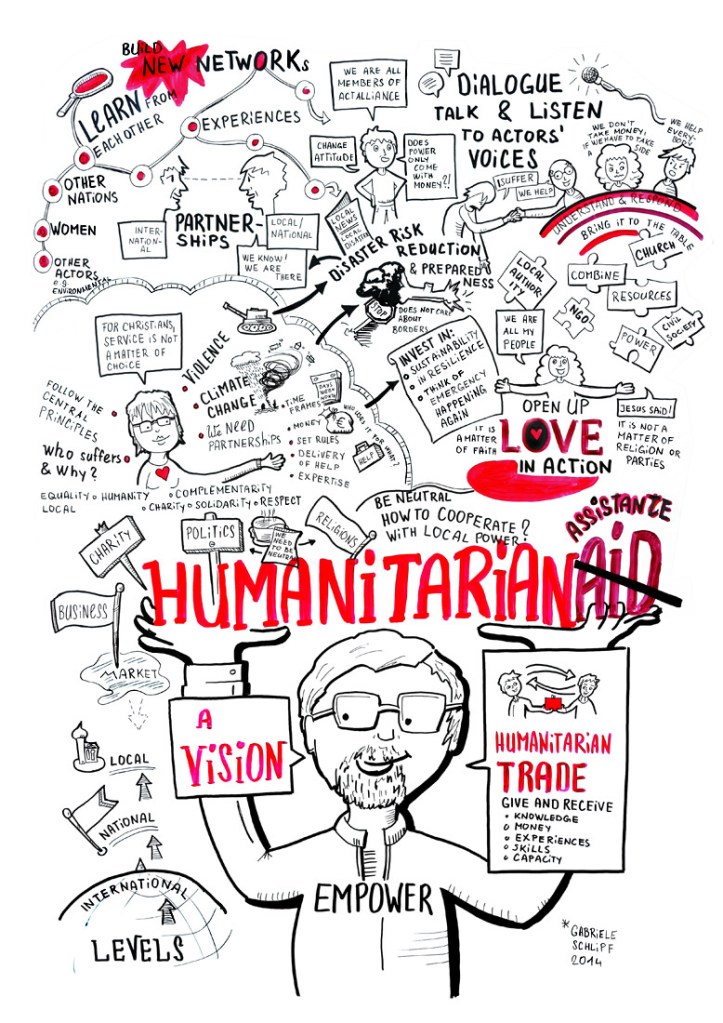 BUILD
NEW NETWORKs
LEARN FROM
EACH OTHER
EXPERIENCES
OTHER
NATIONS
WOMEN
OTHER
ACTORS
e.g.
ENVIRONMENTAL
INTER-
NATION-
AL
PARTNER-
SHIPS
LOCAL/
NATIONAL
WE KNOW!
WE ARE
THERE
WE ARE ALL
MEMBERS OF
ACTALLIANCE
CHANGE
ATTITUDE
DOES
POWER
ONLY
COME
WITH
MONEY?!
LOCAL
NEWS
LOCAL
DISASTER
DIALOGUE
TALK & LISTEN
TO ACTORS'
VOICES
I SUFFER
WE HELP
WE DON'T
TAKE MONEY,
IF WE HAVE TO TAKE
A SIDE
WE HELP
EVERY-
BODY
UNDERSTAND & RESPOND
BRING IT TO THE TABLE
DISASTER RISK
REDUCTION
& PREPARED
NESS
STOP
DOES NOT CARE
ABOUT
BORDERS
LOCAL
AUTHOR-
ITY
CHURCH
COMBINE
RESOURCES
NGO
POWER
CIVIL
SOCIETY
FOR CHRISTIANS,
SERVICE IS NOT
A MATTER OF
CHOICE
VIOLENCE
CLIMATE
CHANGE
WE NEED
PARTNERSHIPS
TIME
FRAMES
MONEY
SET RULES
DELIVERY
OF HELP
EXPERTISE
WHO USES IT FOR WHAT?
HELP
INVEST IN:
SUSTAINABILITY
IN RESILIENCE
THINK OF
EMERGENCY
HAPPENING
AGAIN
WE ARE
ALL MY
PEOPLE
OPEN UP
LOVE
IN ACTION
IT IS
A MATTER
OF FAITH
JESUS SAID!
IT IS NOT A
MATTER OF
RELIGION OR
PARTIES
FOLLOW THE
CENTRAL
PRINCIPLES
WHO SUFFERS
& WHY?
EQUALITY HUMANITY COMPLEMENTARITY
LOCAL CHARITY SOLIDARITY RESPECT
CHARITY
POLITICS
WE
NEED
TO BE
NEUTRAL
RELIGIONS
BE NEUTRAL
HOW TO COOPERATE?
WITH LOCAL POWER!
ASSISTANTE
HUMANITARIAN AID
BUSINESS
MARKET
LOCAL
NATIONAL
INTERNATIONAL
LEVELS
A
VISION
HUMANITARIAN
TRADE
GIVE AND RECEIVE
KNOWLEDGE
MONEY
EXPERIENCES
SKILLS
CAPACITY
EMPOWER
* GABRIELE
SCHLIPF
2014